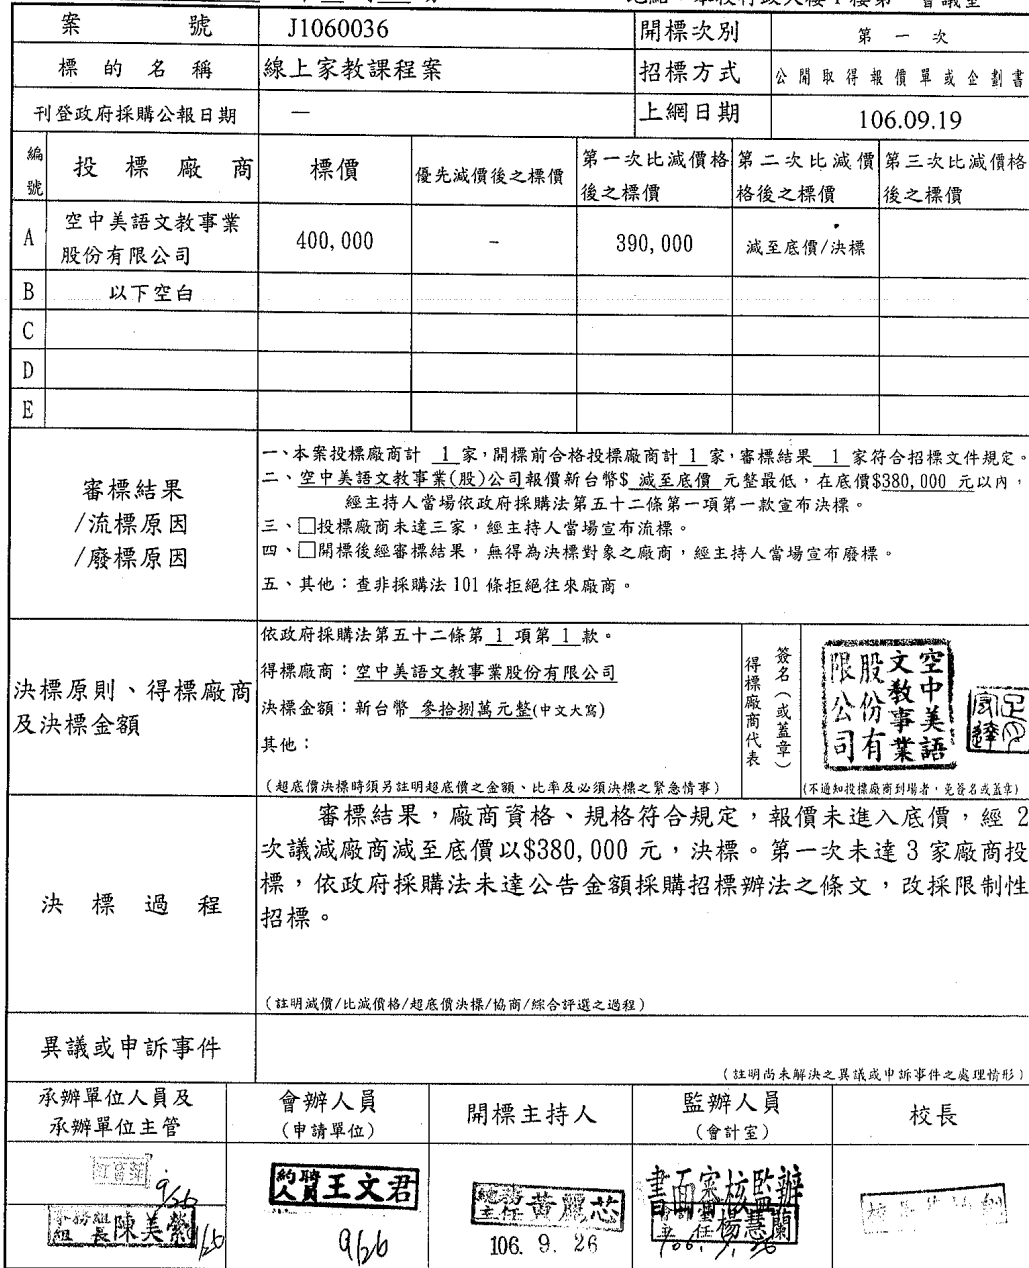 案號 J1060036 開標次別 第一次
標的名稱 線上家教課程案 招標方式 公開取得報價單或企劃書
刊登政府採購公報日期 — 上網日期 106.09.19
編號 投標廠商 標價 優先減價後之標價 第一次比減價格後之標價 第二次比減價格後之標價 第三次比減價格後之標價
A 空中美語文教事業股份有限公司 400,000 - 390,000 減至底價/決標
B 以下空白
C
D
E
審標結果
/流標原因
/廢標原因
一、本案投標廠商計 1 家，開標前合格投標廠商計 1 家，審標結果 1 家符合招標文件規定。
二、空中美語文教事業(股)公司報價新台幣$ 減至底價 元整最低，在底價$380,000 元以內，
經主持人當場依政府採購法第五十二條第一項第一款宣布決標。
三、□投標廠商未達三家，經主持人當場宣布流標。
四、□開標後經審標結果，無得為決標對象之廠商，經主持人當場宣布廢標。
五、其他：查非採購法 101 條拒絕往來廠商。
決標原則、得標廠商
及決標金額
依政府採購法第五十二條第 1 項第 1 款。
得標廠商：空中美語文教事業股份有限公司
決標金額：新台幣 參拾捌萬元整(中文大寫)
其他：
(超底價決標時須另註明超底價之金額、比率及必須決標之緊急情事)
得標廠商代表
簽名(或蓋章)
空中美語
文教事業
股份有
限公司
(不通知投標廠商到場者，免簽名或蓋章)
決標過程
審標結果，廠商資格、規格符合規定，報價未進入底價，經 2
次議減廠商減至底價以$380,000 元，決標。第一次未達 3 家廠商投
標，依政府採購法未達公告金額採購招標辦法之條文，改採限制性
招標。
(註明減價/比減價格/超底價決標/協商/綜合評選之過程)
異議或申訴事件
(註明尚未解決之異議或申訴事件之處理情形)
承辦單位人員及
承辦單位主管
會辦人員
(申請單位)
開標主持人
監辦人員
(會計室)
校長
9/26
組長陳美縈
約聘人員王文君
9/26
總務主任黃麗芯
106. 9. 26
書面審核監辦
楊慧蘭